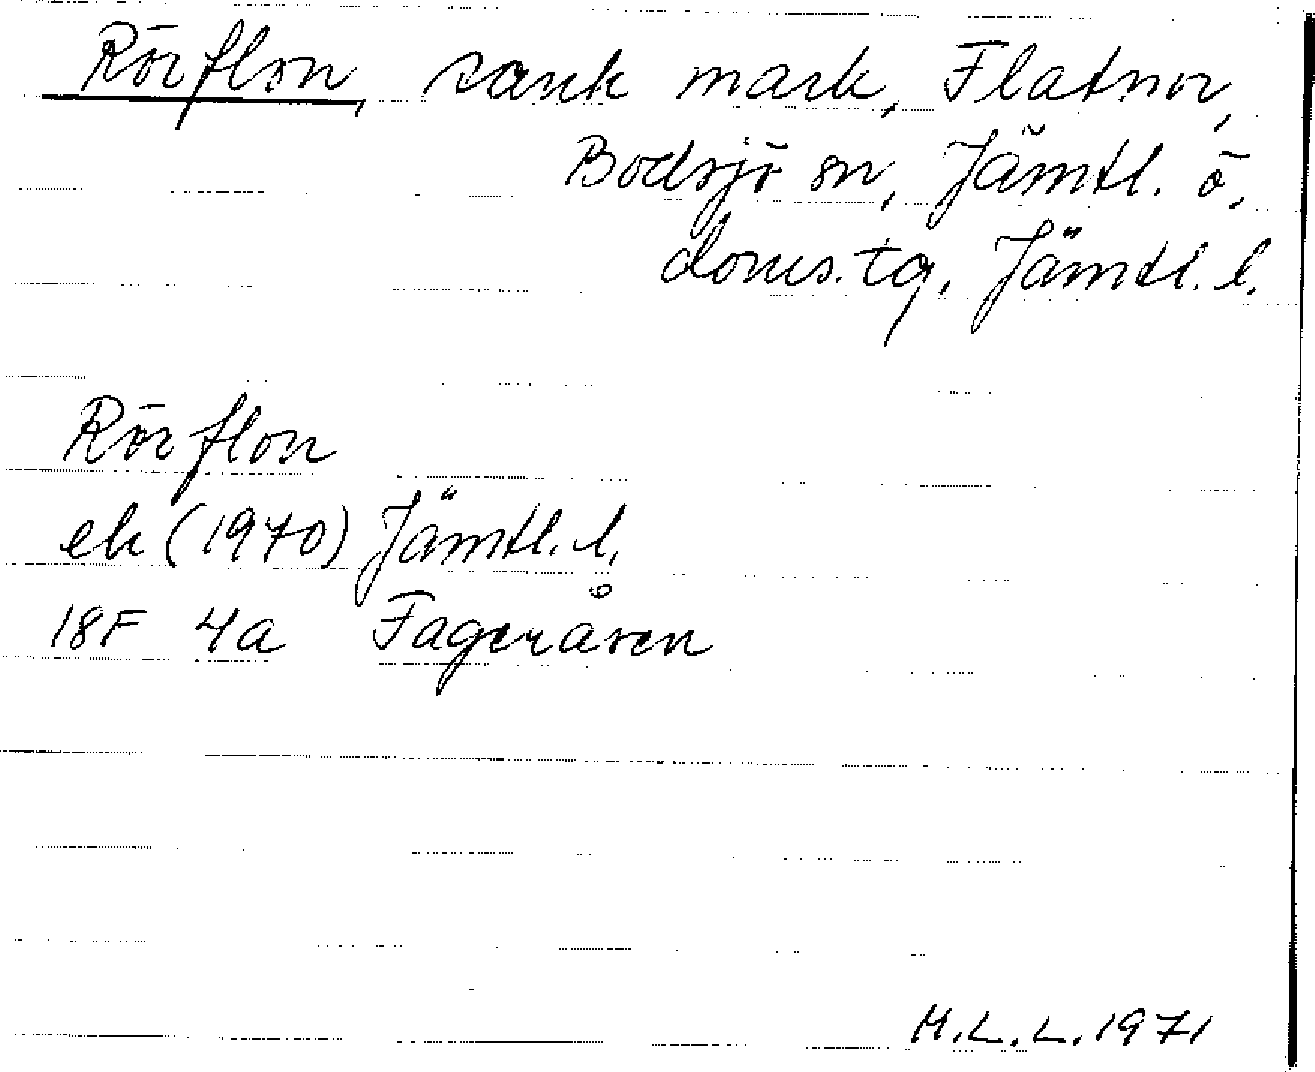 Rörflon, sank mark, Flatnor,
Bodsjö sn, Jämtl. ö.
doms. tg, Jämtl. l.
Rörflon
ek (1970) Jämtl. l.
18F 4a Fageråsen
M.L.L. 1971